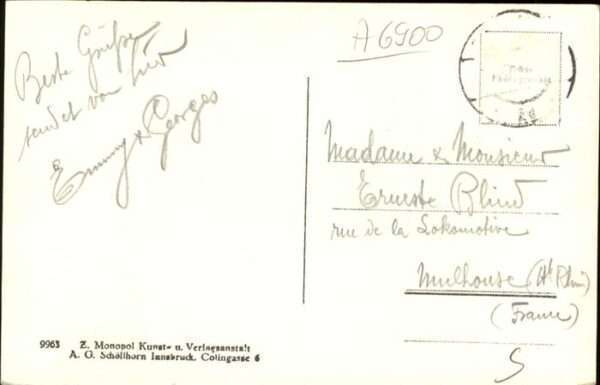 A6900
Beste Grüße
sendet von hier
Emmy & Georges
Madame & Monsieur
Erneste Blind
rue de la Lokomotive
Mulhouse (Ht Rhin)
(France)
S
9963 Z. Monopol Kunst- u. Verlagsanstalt
A. G. Schöllhorn Innsbruck, Colingasse 6